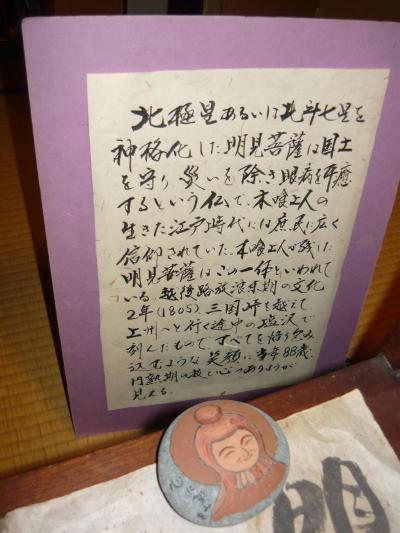 北極星あるいは北斗七星を
神格化した明見菩薩は国土
を守り災いを除き眼病を平癒
するという仏で、木喰上人の
生きた江戸時代には庶民に広く
信仰されていた。木喰上人が残した
明見菩薩はこの一体といわれて
いる。越後路放浪末期の文化
2年(1805)、三国峠を越えて
上州へと行く途中の塩沢で
刻んだもので、すべてを
込むような笑顔に当年88歳、
円熟期の技と心のありようが
見える。
明